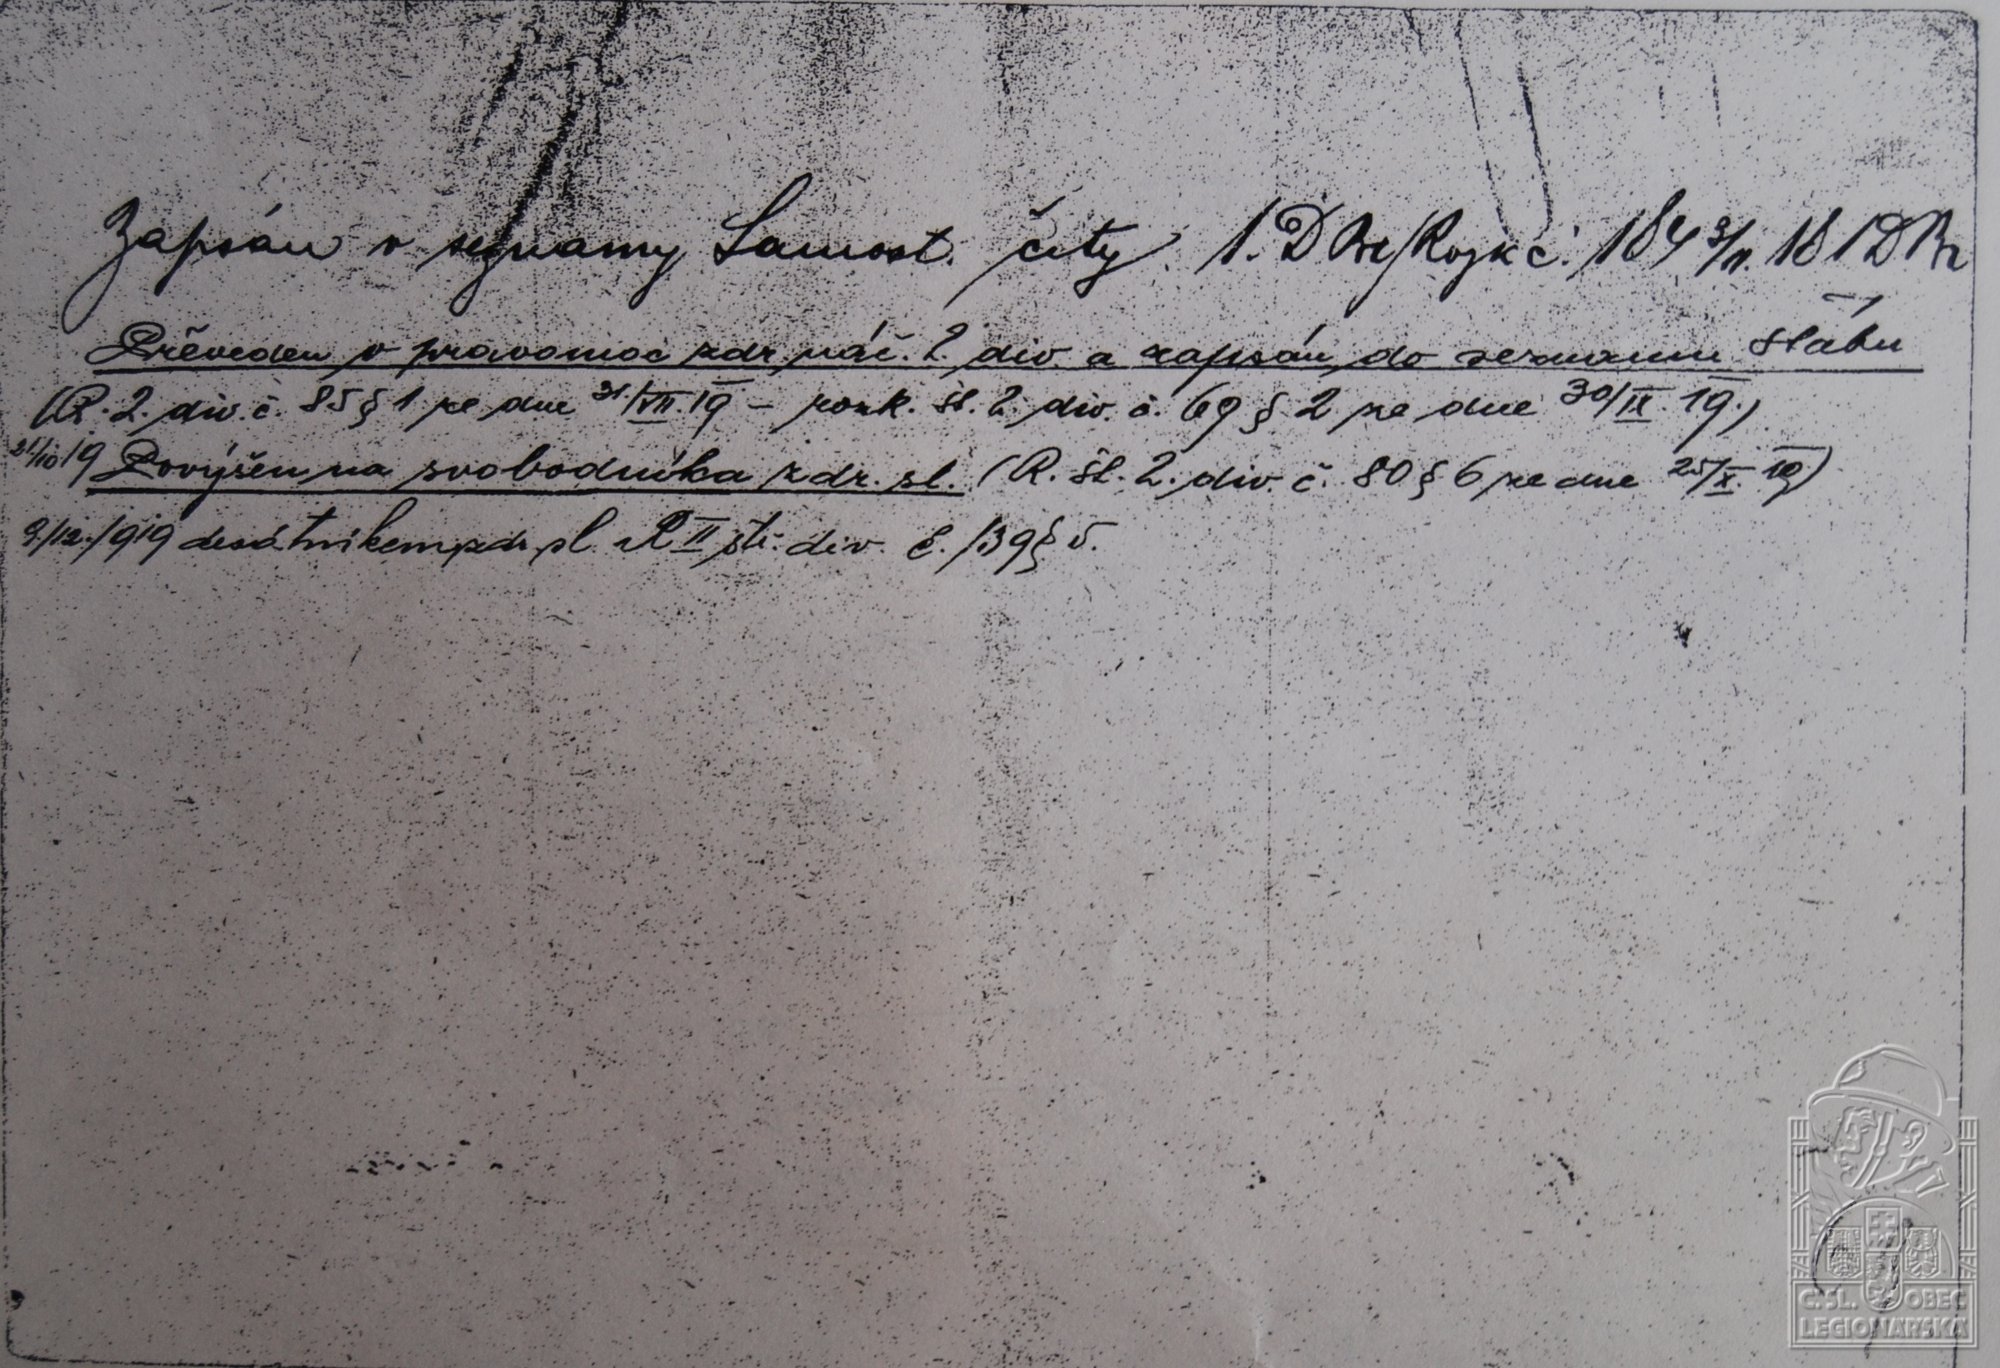 Zapsán v seznamy Samost. čety. 1. D Br/Rozk č. 184 3/11. 18 1 D Br
Převeden v pravomoc zdr. nač. 2. div. a zapsán do seznamu štábu
(R. 2. div. č. 85 § 1 ze dne 31/VII. 19 – rozk. št. 2. div. č. 69 § 2 ze dne 30/IX. 19.)
21/10 19 Povýšen na svobodníka zdr. sl. (R. št. 2. div. č. 80 § 6 ze dne 25/X. 19)
9./12./1919 desátníkem zdr. sl. R II str. div. č. 139 § 5.
Č. SL. OBEC
LEGIONÁŘSKÁ